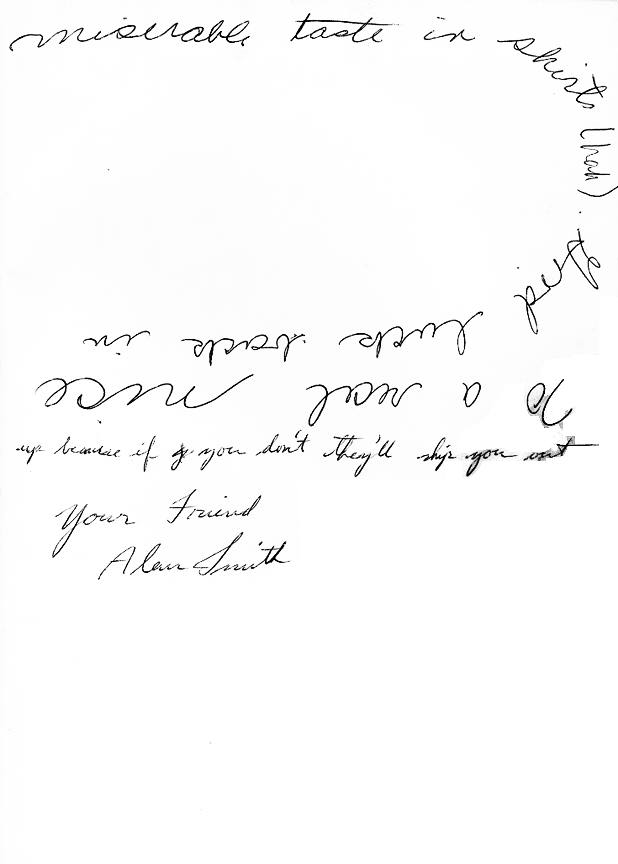 To a real nice
miserable taste in shirts (hah).
luck back in
up because if you don't they'll ship you out
Your Friend
Alan Smith